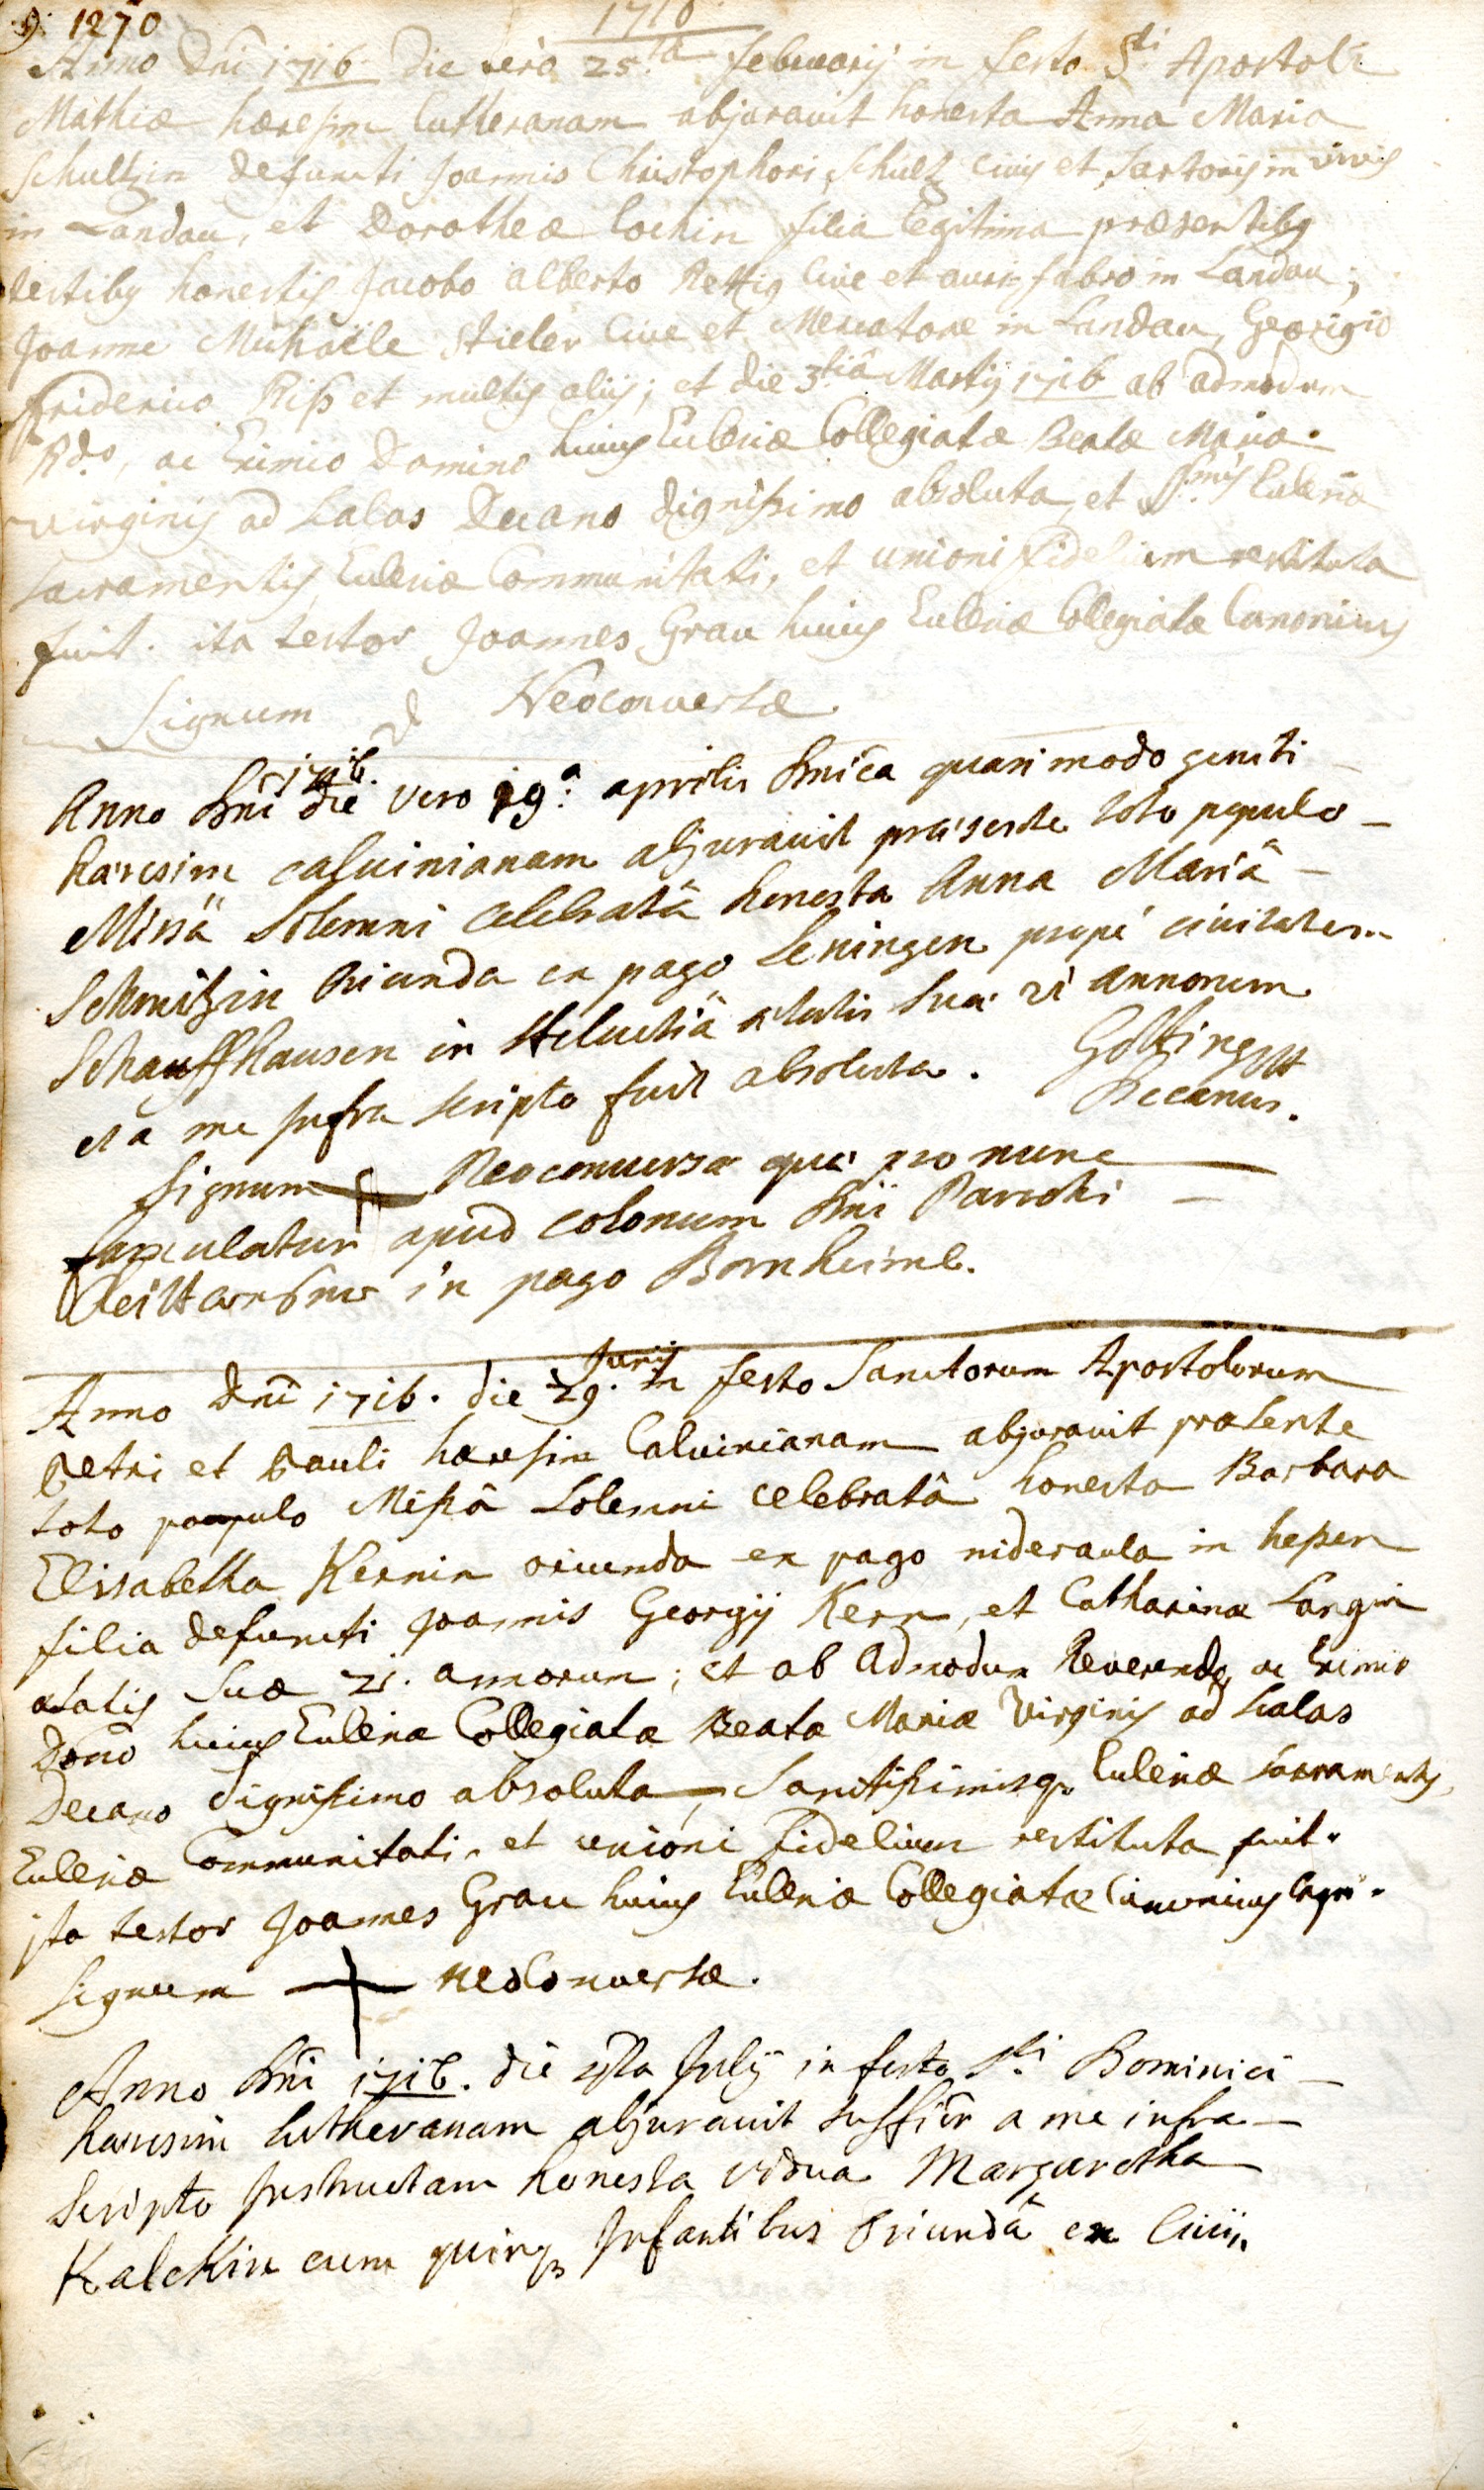 1270
1716
Anno Dni 1716 die vero 25ta februarij in festo Sti Apostoli
Mathiæ hæresim Lutheranam abjuravit honesta Anna Maria
Schultzin defuncti Joannis Christophori Schultz civis et Sartoris in vivis
in Landau, et Dorotheæ Cochin filia legitima præsentibus
testibus honestis Jacobo Alberto Rettig Cive et aurifabro in Landau;
Joanne Michaële Stieler Cive et Mercatore in Landau, Georgio
friderico Riß et multis aliis; et die 3tiâ Martij 1716 ab admodum
Rdo, ac Eximio Domino huius Ecclesiæ Collegiatæ Beatæ Mariæ
Virginis ad Scalas Decano dignißimo absoluta, et Smis Ecclesiæ
sacramentis, Ecclesiæ Communitati, et unioni fidelium restituta
fuit. ita testor Joannes Grau huius Ecclesiæ Collegiatæ Canonicus
Signum Neoconversæ.
Anno Dni 1716. die vero 19a aprilis Dnica quasi modo geniti
hæresim calvinianam abjuravit præsente toto populo
Missâ Solemni celebratâ honesta Anna Mariâ
Schmitzin Oriunda ex pago Leningen propè civitatem
Schauffhausen in Helvetiâ ætatis suæ 21 annorum
et a me Infra scripto fuit absoluta.
Decanus.
Signum Neoconversæ quæ pro nunc
famulatur apud colonum Dni Parochi
in pago Bornheimb.
Anno Dni 1716. die 29. Junij in festo Sanctorum Apostolorum
Petri et Pauli hæresim Calvinianam abjuravit præsente
toto populo Mißâ Solemni celebratâ honesta Barbara
Elisabetha Kernin oriunda ex pago nideraula in heßen
filia defuncti Joannis Georgij Kern, et Catharinæ Langin
ætatis Suæ 21. annorum; et ab Admodum Reverendo, ac Eximio
Dono huius Ecclesiæ Collegiatæ Beatæ Mariæ Virginis ad Scalas
Decano dignißimo absoluta, Sanctißimisq. Ecclesiæ sacramentis,
Ecclesiæ Communitati, et unioni fidelium restituta fuit.
ita testor Joannes Grau huius Ecclesiæ Collegiatæ Canonicus
Signum neoConversæ.
Anno Dni 1716. die Julij in festo Sti Dominici
hæresim lutheranam abjuravit a me infra
Scripto Instructam honesta vidua Margaretha
Kalckin cum quinq. Infantibus Oriundâ ex